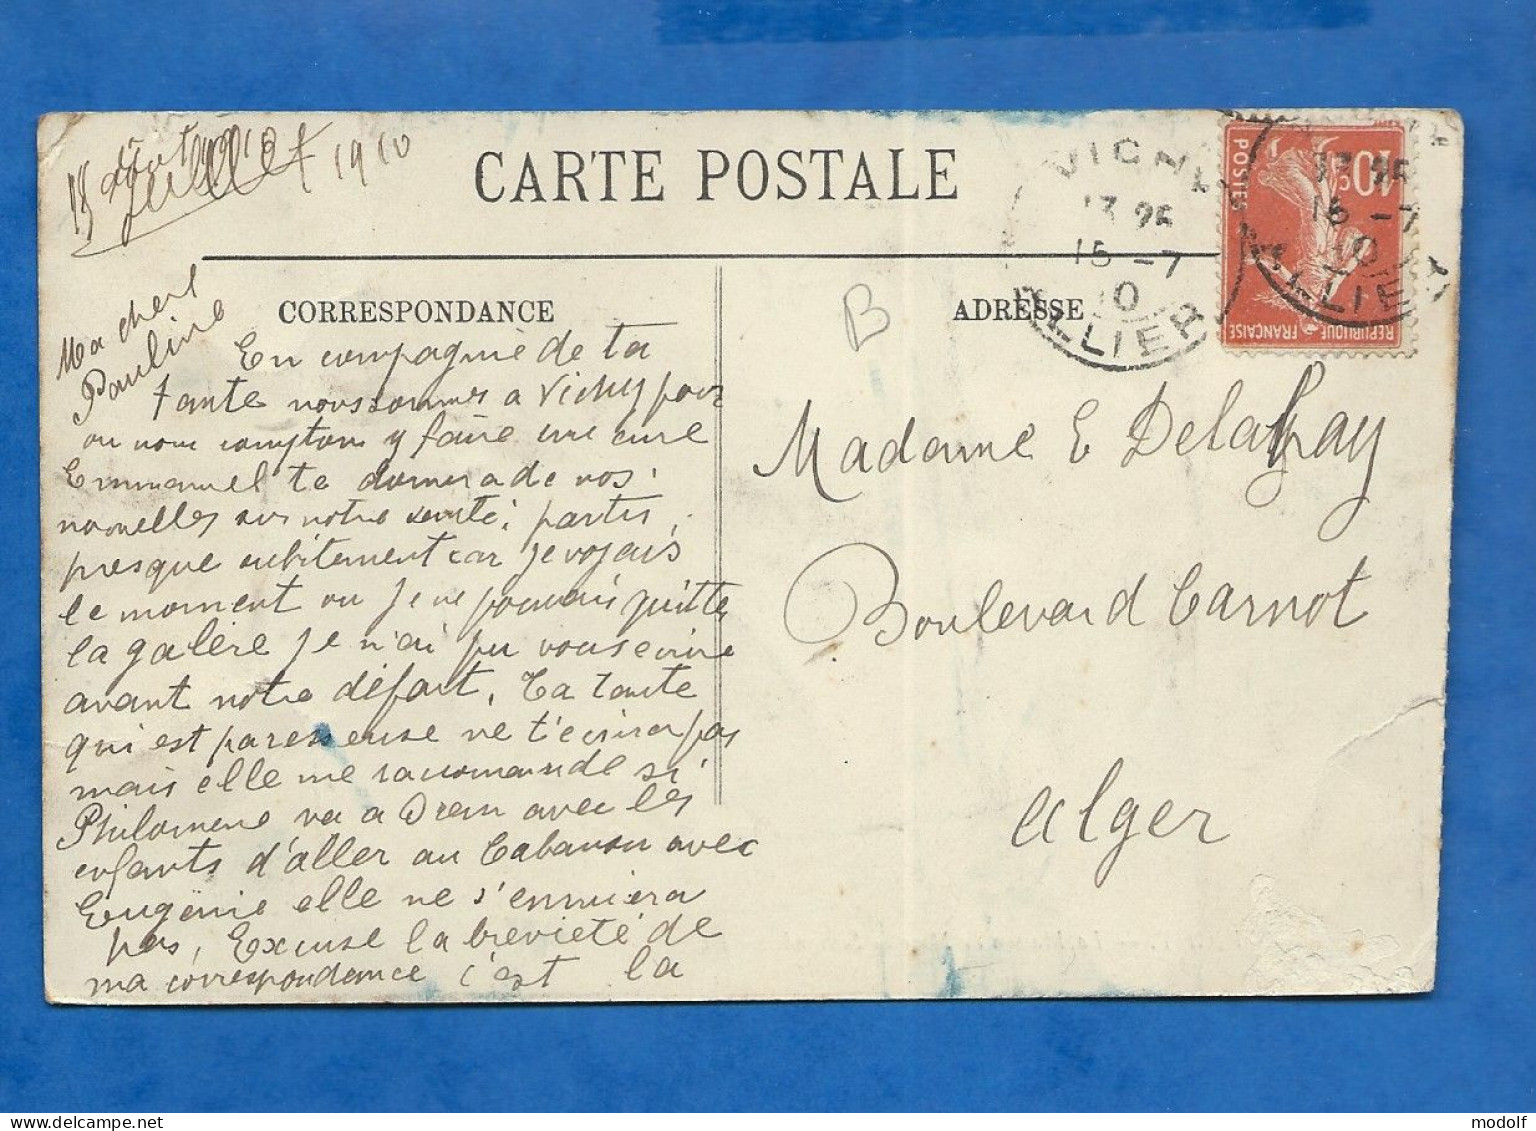 15 Août 1910
Juillet
CARTE POSTALE
VICHY
13 25
15 -7
10
ALLIER
13 25
15 -7
10
ALLIER
10c
POSTES
REPUBLIQUE FRANÇAISE
CORRESPONDANCE
ADRESSE
B
Ma chere
Pauline
En compagnie de ta
tante nous sommes a Vichy pour
ou nous comptons y faire une cure
Emmanuel te donnera de nos
nouvelles sur notre santé, partis
presque subitement car je voyais
le moment ou je ne pouvais quitter
la galère je n'ai pu vous ecrire
avant notre départ. Ta Tante
qui est paresseuse ne t'écrira pas
mais elle me racommande si
Philomene va a Oran avec les
enfants d'aller au Cabanon avec
Eugènie elle ne s'ennuiera
pas, Excuse la brevieté de
ma correspondance c'est la
Madame E Delahay
Boulevard Carnot
Alger
modolf